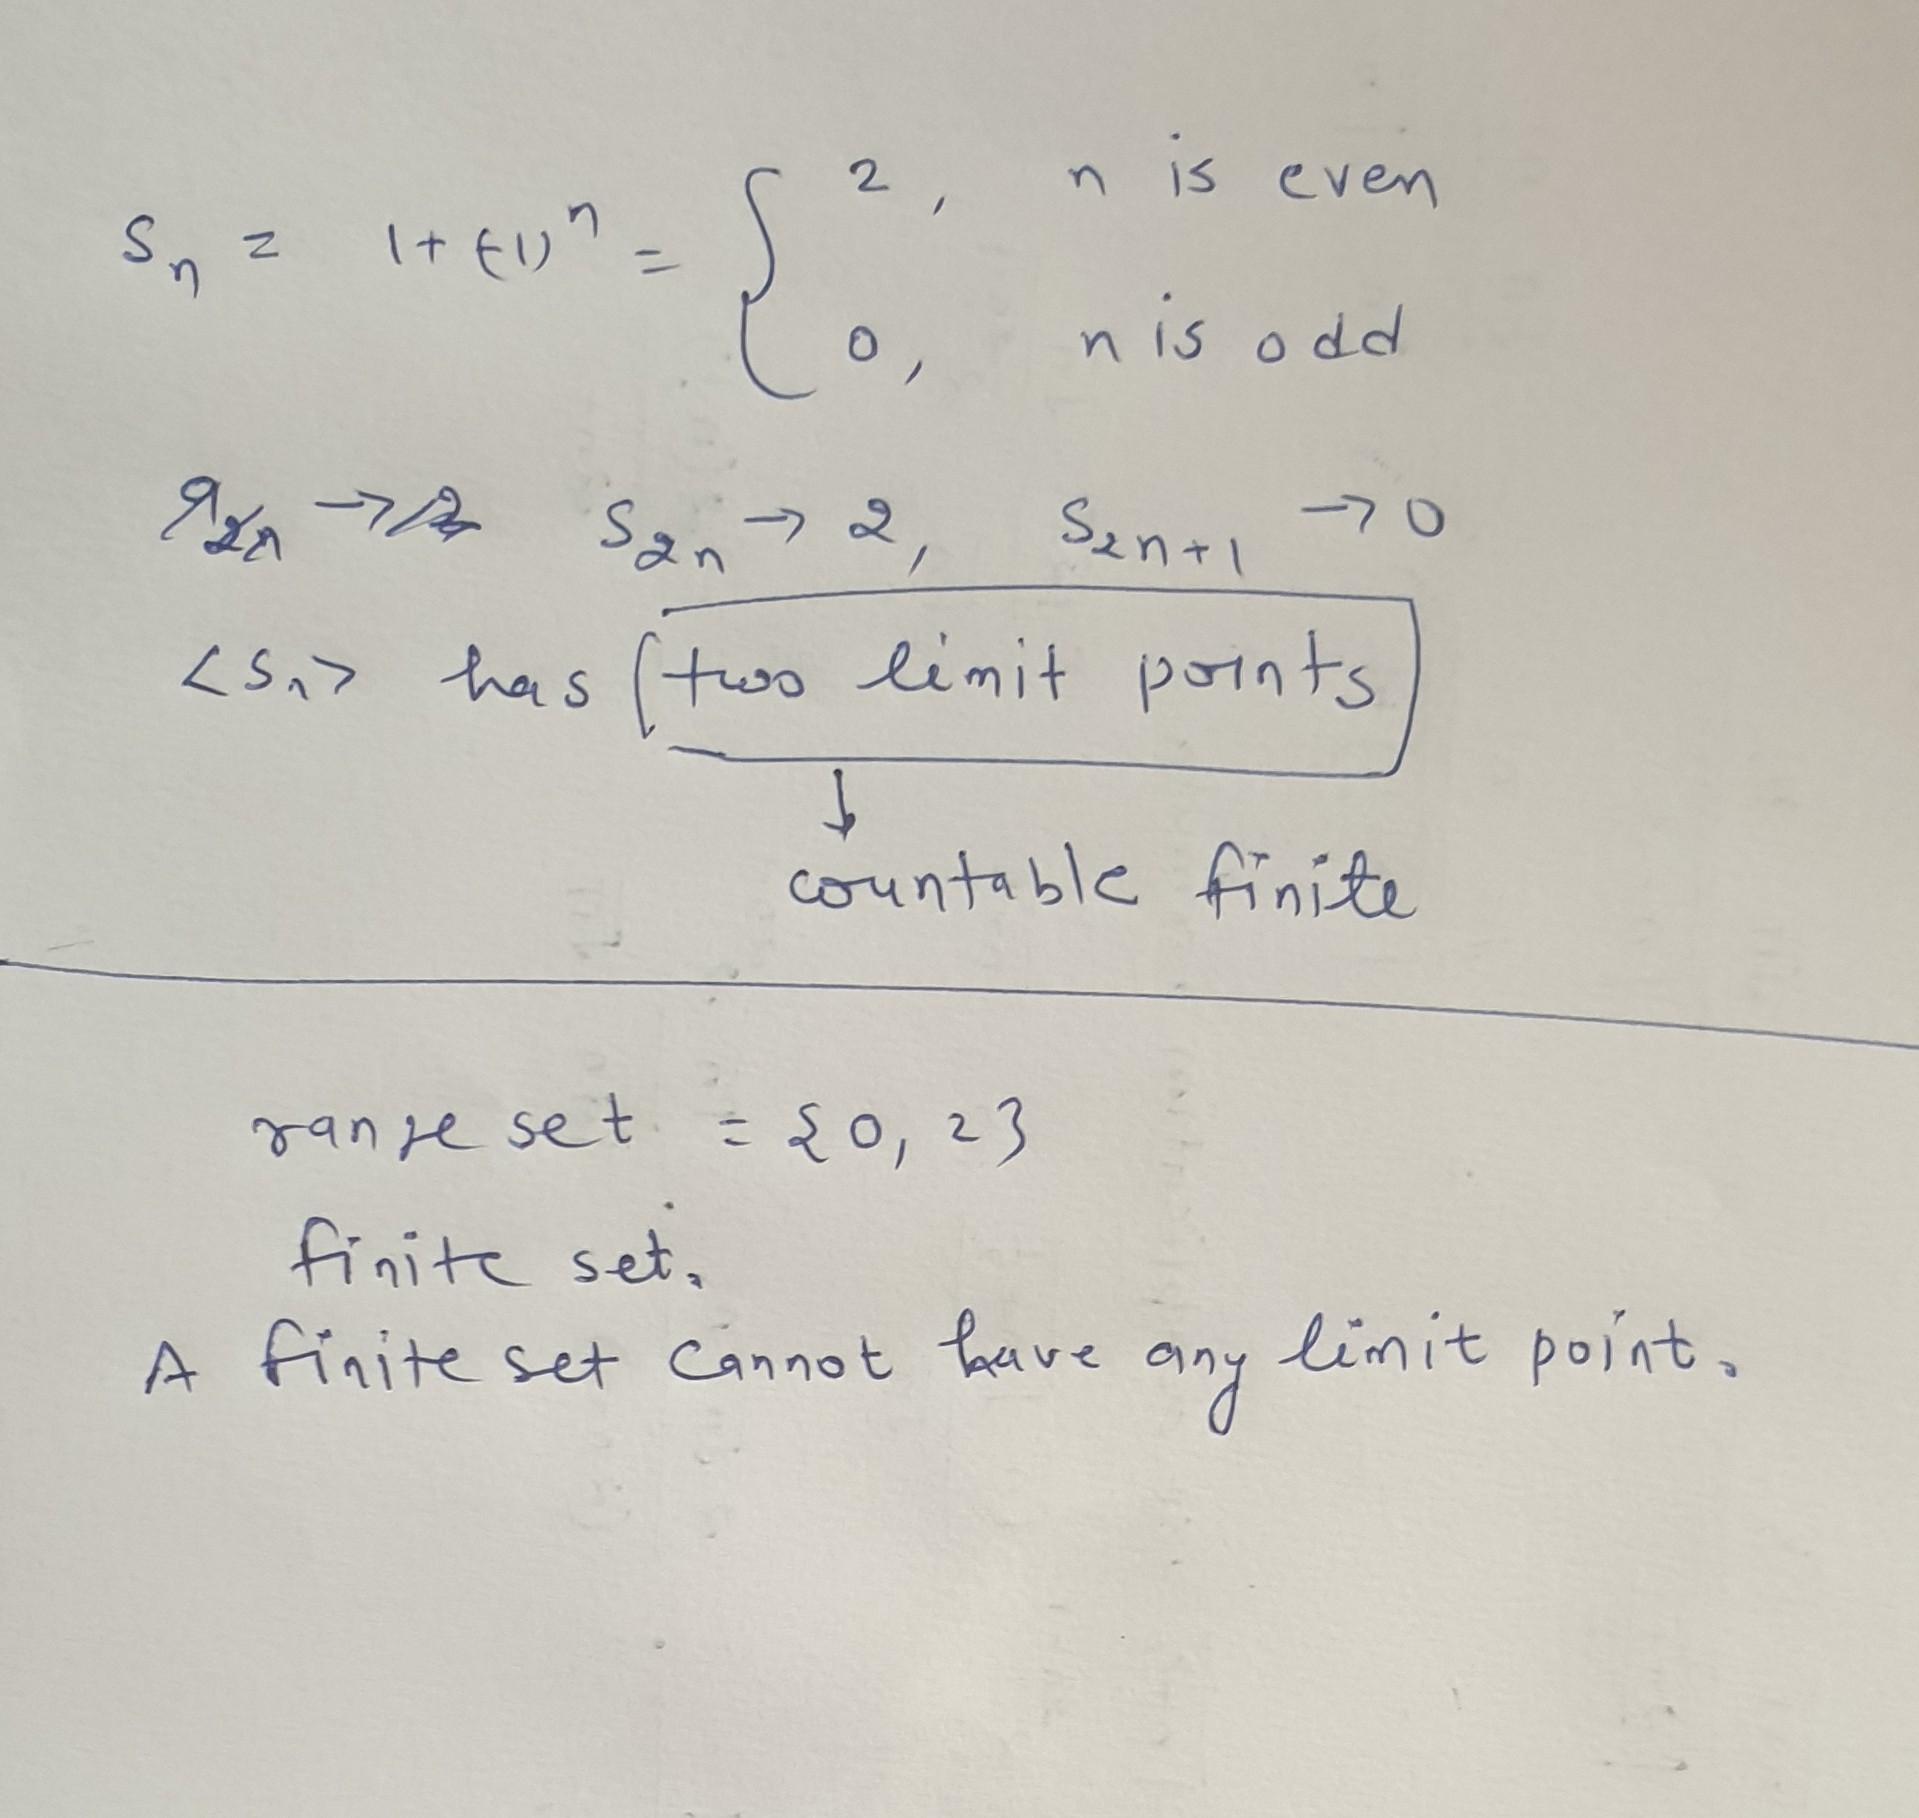 Sn = 1+(-1)^n = { 2, n is even
0, n is odd
S2n → 2, S2n+1 → 0
<Sn> has two limit points
↓
countable finite
range set = {0, 2}
finite set.
A finite set cannot have any limit point.